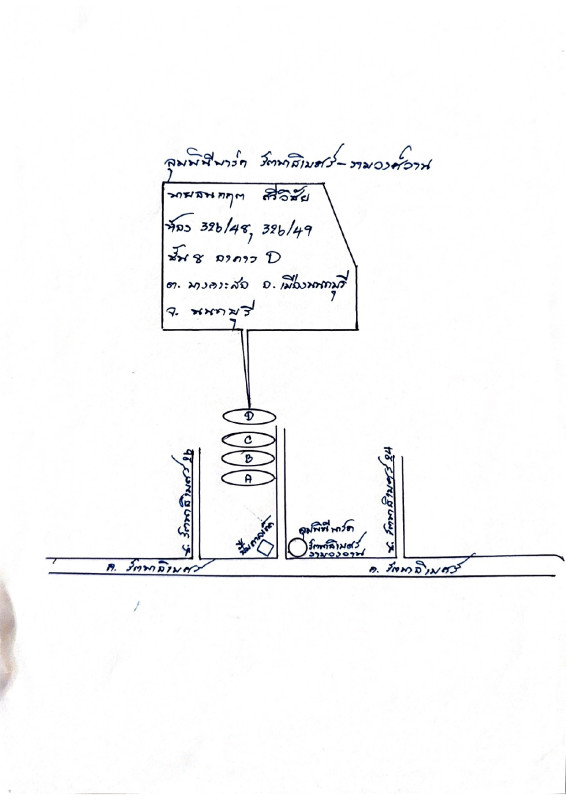 ลุมพินีพาร์ค รัตนาธิเบศร์-งามวงศ์วาน
ศรีวิชัย
ห้อง 326/48, 326/49
ชั้น 8 อาคาร D
ต. บางกระสอ อ. เมืองนนทบุรี
จ. นนทบุรี
D
C
B
A
ซ. รัตนาธิเบศร์
ซ. รัตนาธิเบศร์
ลุมพินีพาร์ค
รัตนาธิเบศร์
งามวงศ์วาน
ถ. รัตนาธิเบศร์
ถ. รัตนาธิเบศร์